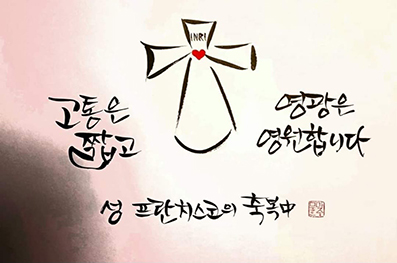 INRI
고통은
짧고
영광은
영원합니다
성 프란치스코의 축복中